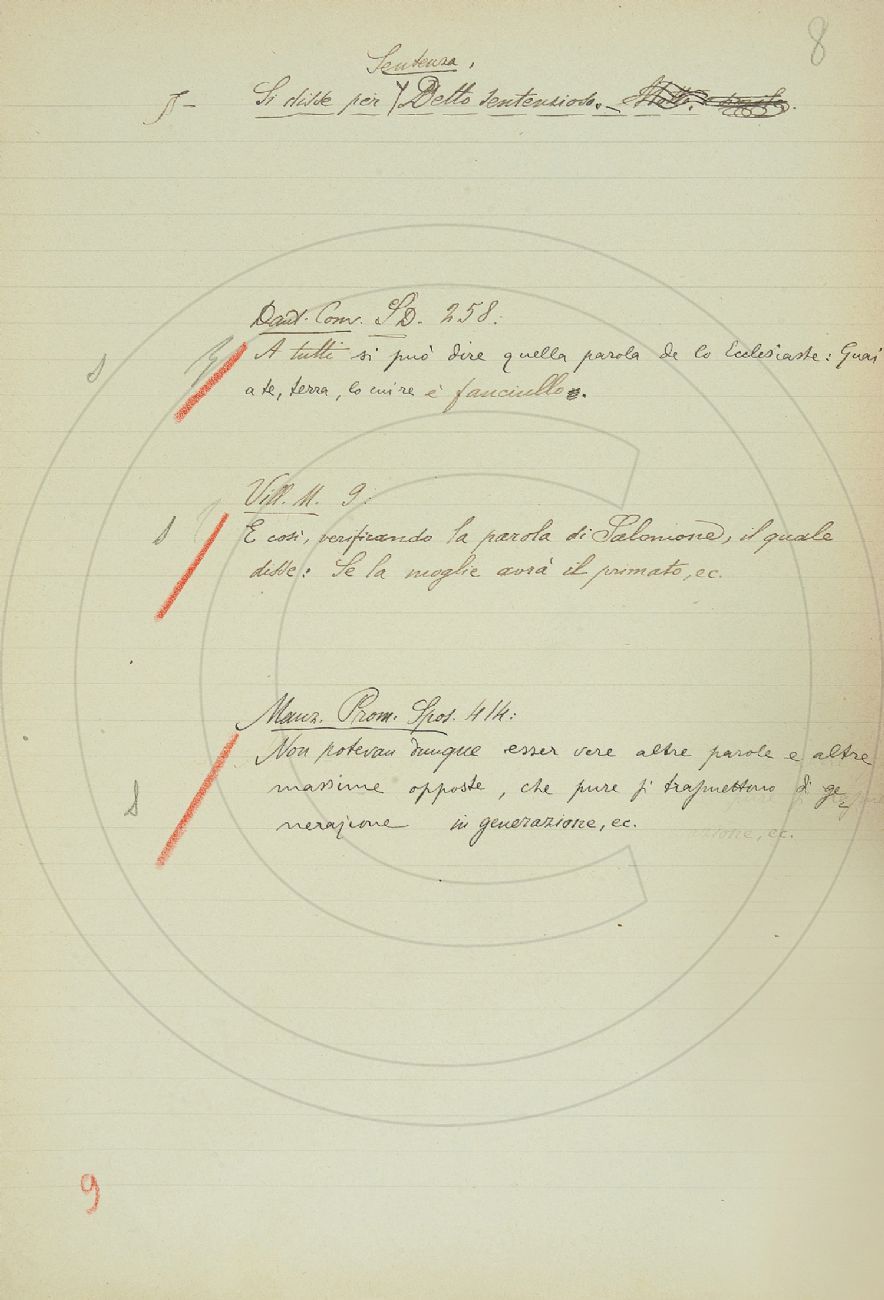 8
Sentenza,
§ – Si disse per Detto sentenzioso. –
Dant. Conv. SD. 258:
A tutti si può dire quella parola de lo Ecclesiaste: Guai
a te, terra, lo cui re è fanciullo.
Vill. M. 9:
E così, verificando la parola di Salomone, il quale
disse: Se la moglie avrà il primato, ec.
Manz. Prom. Spos. 414:
Non potevan dunque esser vere altre parole e altre
massime opposte, che pure si trasmettono di ge=
nerazione in generazione, ec.
9